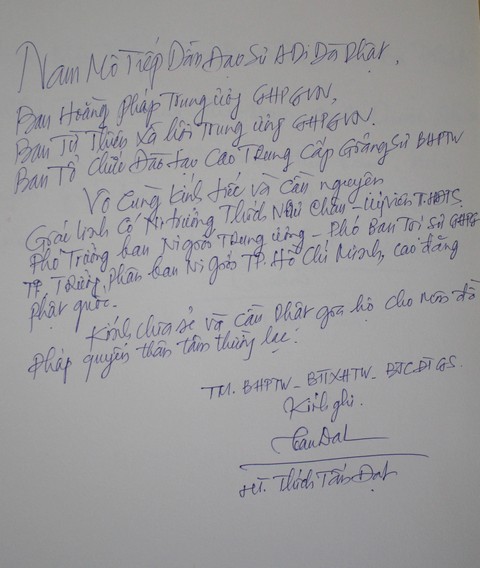 Nam Mô Tiếp Dẫn Đạo Sư A Di Đà Phật,
Ban Hoằng Pháp Trung ương GHPGVN,
Ban Từ Thiện Xã hội Trung ương GHPGVN.
Ban Tổ Chức Đào tạo Cao Trung Cấp Giảng Sư BHPTW
Vô Cùng kính tiếc và cầu nguyện
Giác linh Cố Ni trưởng Thích Nữ Châu - Ủy viên T.HĐTS
Phó Trưởng ban Ni giới Trung ương - Phó Ban Trị Sự GHPG
TP, Trưởng Phân ban Ni giới TP. Hồ Chí Minh, cao đăng
Phật quốc.
Kính chia sẻ và cầu Phật gia hộ cho môn đồ
Pháp quyến thân tâm thường lạc.
TM. BHPTW - BTTXHTW - BTCĐTGS.
Kính ghi
TanDat
HT. Thích Tấn Đạt